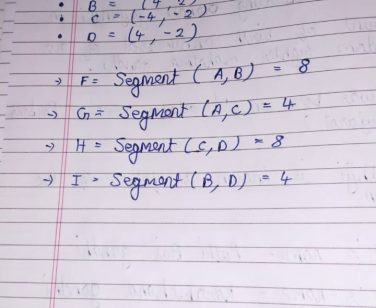 • B = (4, 2)
• C = (-4, -2)
• D = (4, -2)
→ F = Segment (A, B) = 8
→ G = Segment (A, C) = 4
→ H = Segment (C, D) = 8
→ I = Segment (B, D) = 4